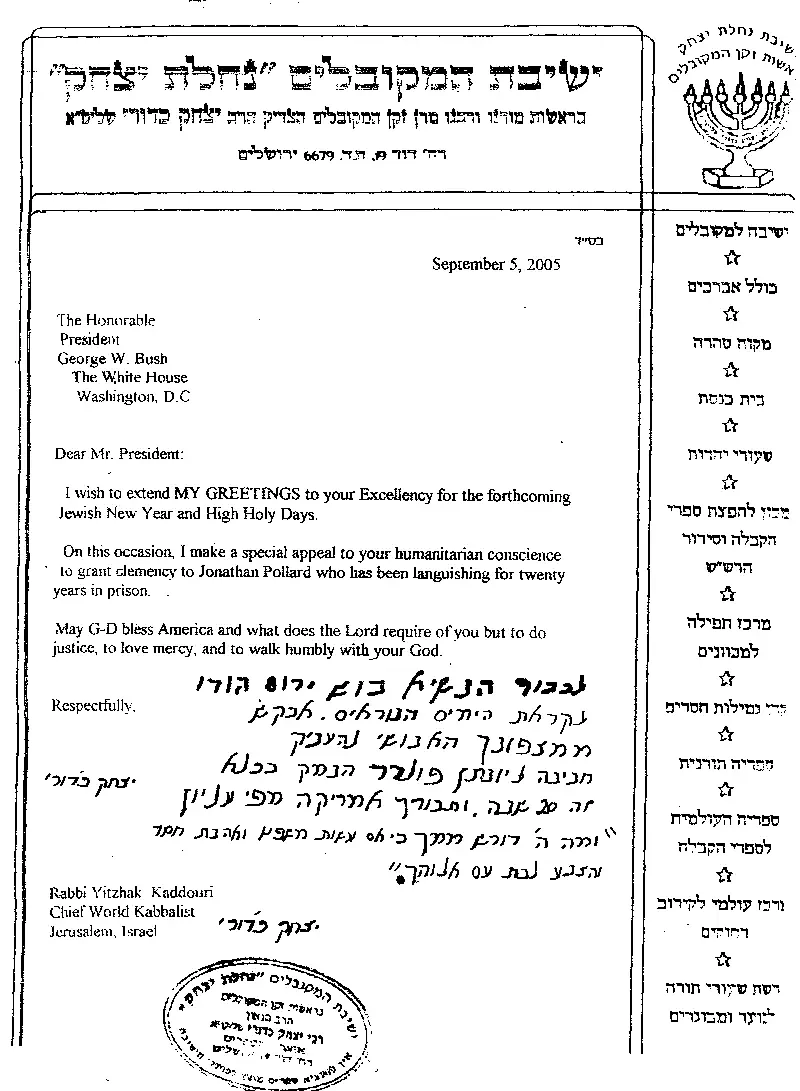 ישיבת המקובלים "נחלת יצחק"
בראשות מורנו ורבנו מרן זקן המקובלים הצדיק הרב יצחק כדורי שליט"א
רח' דוד 19, ת.ד. 6679 ירושלים
ישיבת נחלת יצחק
זקן המקובלים
בס"ד
September 5, 2005
The Honorable
President
George W. Bush
The White House
Washington, D.C
Dear Mr. President:
I wish to extend MY GREETINGS to your Excellency for the forthcoming
Jewish New Year and High Holy Days.
On this occasion, I make a special appeal to your humanitarian conscience
to grant clemency to Jonathan Pollard who has been languishing for twenty
years in prison.
May G-D bless America and what does the Lord require of you but to do
justice, to love mercy, and to walk humbly with your God.
לכבוד הנשיא בוש ירום הודו
Respectfully,
לקראת הימים הנוראים. אבקש
ממצפונך האנושי להעניק
חנינה ליונתן פולרד הנמק בכלא
יצחק כדורי
זה 20 שנה. ותבורך אמריקה מפי עליון
"ומה ה' דורש ממך כי אם עשות משפט ואהבת חסד
והצנע לכת עם אלוהיך."
Rabbi Yitzhak Kaddouri
Chief World Kabbalist
Jerusalem, Israel
יצחק כדורי
ישיבת המקובלים "נחלת יצחק"
ישיבה למקובלים
כולל אברכים
מקוה טהרה
בית כנסת
שעורי יהדות
מכון להפצת ספרי
הקבלה וסידור
הרש"ש
מרכז תפילה
למכוונים
גמילות חסדים
ספריה תורנית
ספריה העולמית
לספרי הקבלה
מרכז עולמי לקירוב
רחוקים
רשת שעורי תורה
לנוער ומבוגרים